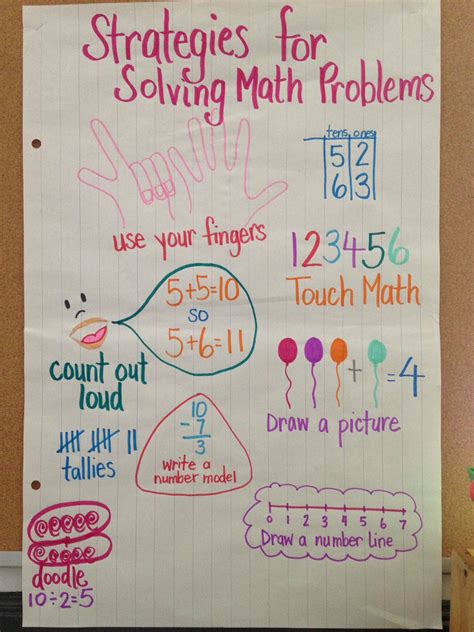 Strategies for
Solving Math Problems
tens, ones
5 2
6 3
use your fingers
1 2 3 4 5 6
Touch Math
5+5=10
so
5+6=11
count out
loud
+ =4
Draw a picture
tallies
10
-7
3
Write a
number model
0 1 2 3 4 5 6 7
Draw a number line
doodle
10÷2=5